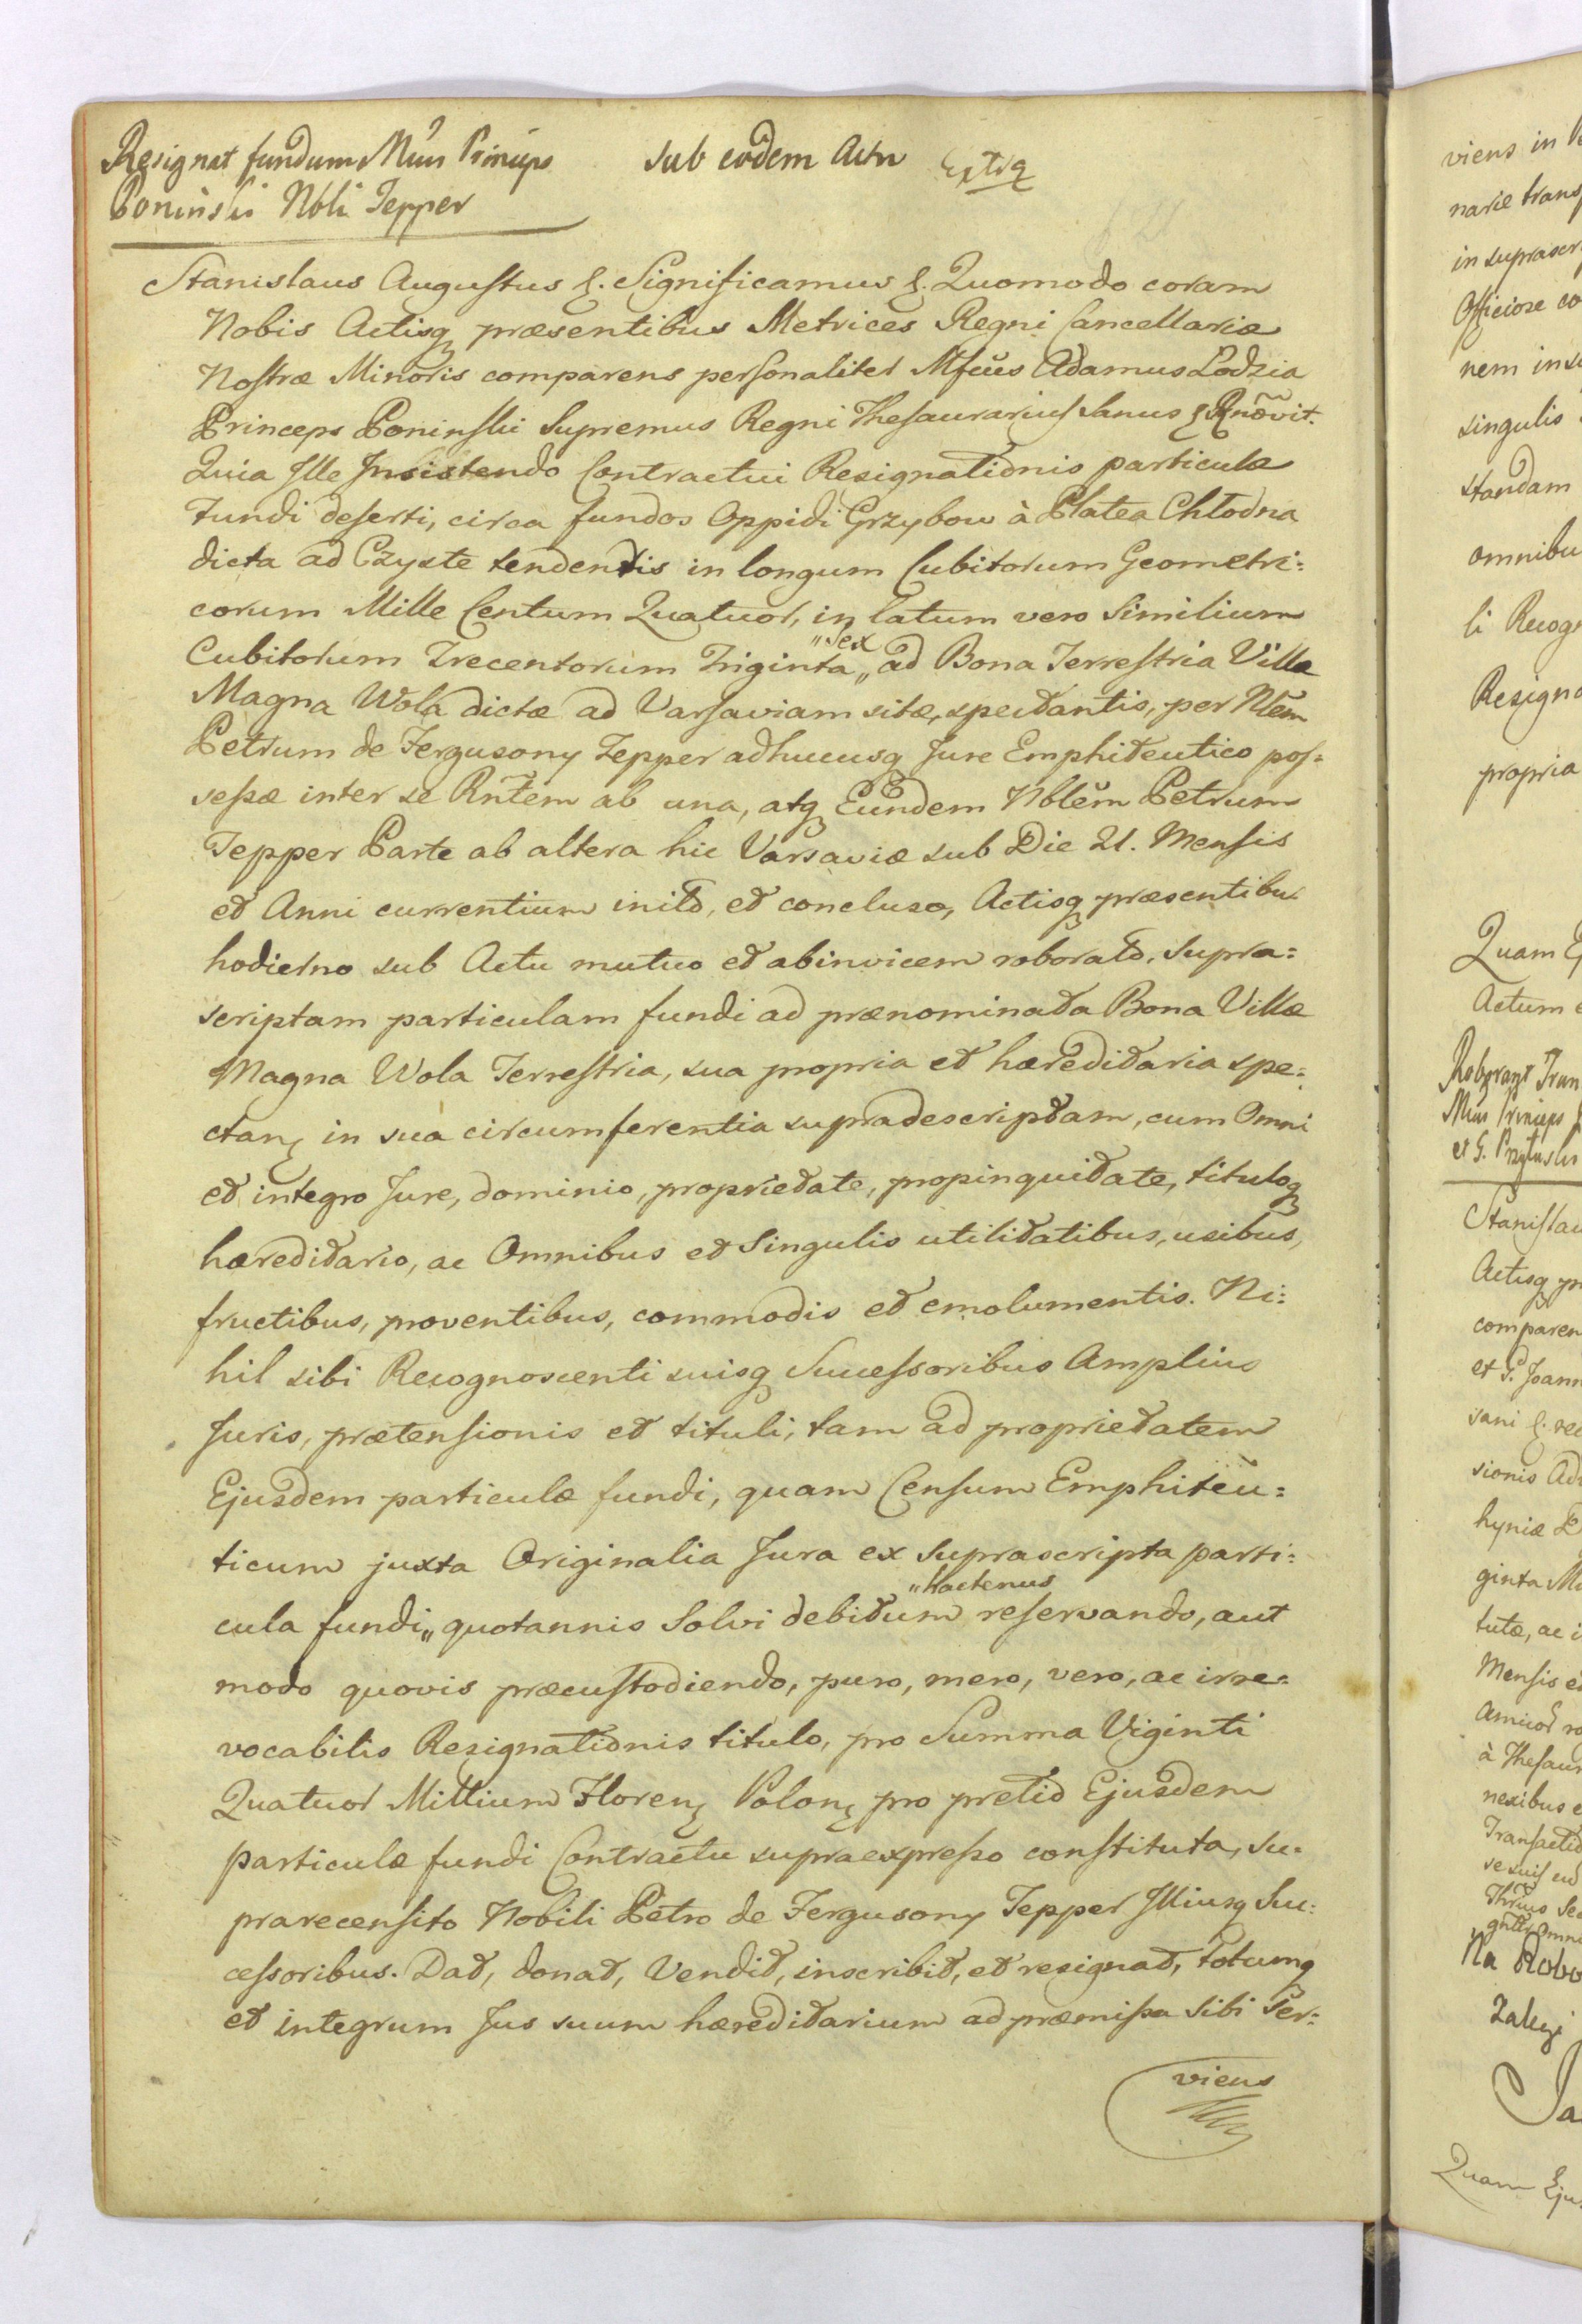 Resignat fundum Mŭus Princeps
Poninski Nbli Tepper
sub eodem Actu Extrą
Stanislaus Augustus &. Significamus &. Quomodo coram
Nobis Actisq præsentibus Metrices Regni Cancellariæ
Nostræ Minoris comparens personaliter Mfcus Adamus Lodzia
Princeps Poninski Supremus Regni Thesaurarius sanus & Rnōvit.
Quia Ille Insistendo Contractui Resignationis particulæ
Fundi deserti, circa fundos Oppidi Grzybow à Platea Chłodna
dicta ad Czyste tendentis in longum Cubitorum Geometri=
corum Mille Centum Quatuor, in latum vero Similium
Cubitorum Trecentorum Triginta „sex„ ad Bona Terrestria Villæ
Magna Wola dictæ ad Varsaviam sitæ, spectantis, per Nlem
Petrum de Fergusony Tepper adhucusq Jure Emphiteutico pos=
sessæ inter se Rntem ab una, atq Eundem Nblem Petrum
Tepper Parte ab altera hic Varsaviæ sub Die 21. Mensis
et Anni currentium inito, et concluso, Actisq præsentibus
hodierno sub Actu mutuo et abinvicem roborato, supra=
scriptam particulam fundi ad prænominata Bona Villæ
Magna Wola Terrestria, sua propria et hæreditaria spe=
ctan in sua circumferentia supradescriptam, cum Omni
et integro Jure, dominio, proprietate, propinquitate, tituloq
hæreditario, ac Omnibus et Singulis utilitatibus, usibus,
fructibus, proventibus, commodis et emolumentis. Ni=
hil sibi Recognoscenti suisq Successoribus Amplius
Juris, prætensionis et tituli, tam ad proprietatem
Ejusdem particulæ fundi, quam Censum Emphiteu=
ticum juxta Originalia Jura ex suprascripta parti=
cula fundi„ „hactenus quotannis Solvi debitum reservando, aut
modo quovis præcustodiendo, puro, mero, vero, ac irre=
vocabilis Resignationis titulo, pro Summa Viginti
Quatuor Millium Floren Polon pro pretio Ejusdem
particulæ fundi Contractu supraexpresso constituta, su=
prarecensito Nobili Petro de Fergusony Tepper Illiusq Suc=
cessoribus. Dat, donat, Vendit, inscribit, et resignat, totumq
et integrum Jus suum hæreditarium ad præmissa Sibi Ser=
viens
viens in
nariæ trans
in suprascr
Officiose co
nem in
singulis
standam
omnibu
li Recogn
Resigna
propria
Quam
Actum
Roborant Tran
Mŭus Princeps
et G.
Stanislau
Actisq pr
comparen
et G. Joann
sani &. rec
sionis Ad
hyniæ
ginta Mi
tutæ, ac i
Mensis et
à Thesaur
nexibus
Transactio
se suis
Na Robo
Quam Eju